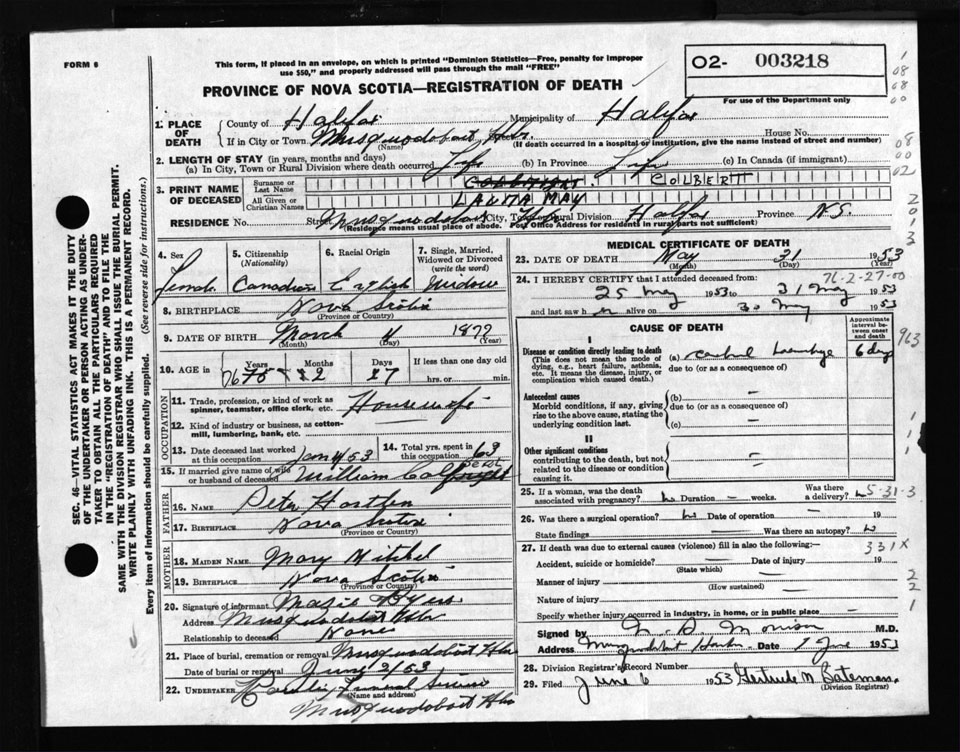 FORM 6
This form, if placed in an envelope, on which is printed "Dominion Statistics—Free, penalty for improper
use $50," and properly addressed will pass through the mail "FREE"
O2- 003218
For use of the Department only
PROVINCE OF NOVA SCOTIA—REGISTRATION OF DEATH
1. PLACE OF DEATH
County of Halifax Municipality of Halifax
If in City or Town Musquodoboit Hbr. Street House No.
(Name) (If death occurred in a hospital or institution, give the name instead of street and number)
2. LENGTH OF STAY (in years, months and days)
(a) In City, Town or Rural Division where death occurred Life (b) In Province Life (c) In Canada (if immigrant)
3. PRINT NAME OF DECEASED
Surname or Last Name COLBERT
All Given or Christian Names MAY
RESIDENCE No. Street Musquodoboit City, Town or Rural Division Halifax Province N.S.
(Residence means usual place of abode. Post Office Address for residents in rural parts not sufficient)
4. Sex Female
5. Citizenship (Nationality) Canadian
6. Racial Origin English
7. Single, Married, Widowed or Divorced (write the word) Widow
8. BIRTHPLACE Nova Scotia
(Province or Country)
9. DATE OF BIRTH March 1877
(Month) (Day) (Year)
10. AGE in Years 76 Months 2 Days
If less than one day old
hrs. or min.
OCCUPATION
11. Trade, profession, or kind of work as spinner, teamster, office clerk, etc. Housewife
12. Kind of industry or business, as cotton-mill, lumbering, bank, etc.
13. Date deceased last worked at this occupation Jan 53
14. Total yrs. spent in this occupation
15. If married give name of wife or husband of deceased William
FATHER
16. NAME Peter
17. BIRTHPLACE Nova Scotia
(Province or Country)
MOTHER
18. MAIDEN NAME Mary Mitchel
19. BIRTHPLACE Nova Scotia
(Province or Country)
20. Signature of informant Mazie
Address Musquodoboit Hbr
Relationship to deceased None
21. Place of burial, cremation or removal Musquodoboit Hbr
Date of burial or removal June 2/53
22. UNDERTAKER Funeral Service
(Name and address)
Musquodoboit Hbr
MEDICAL CERTIFICATE OF DEATH
23. DATE OF DEATH May 31 1953
(Month) (Day) (Year)
76-2-27-00
24. I HEREBY CERTIFY that I attended deceased from:
25 May 1953 to 31 May 1953
and last saw h er alive on 30 May 1953
CAUSE OF DEATH
Approximate interval between onset and death
I
Disease or condition directly leading to death
(This does not mean the mode of dying, e.g., heart failure, asthenia, etc. It means the disease, injury, or complication which caused death.)
(a) 6 days
due to (or as a consequence of)
Antecedent causes
Morbid conditions, if any, giving rise to the above cause, stating the underlying condition last.
(b) —
due to (or as a consequence of)
(c) —
II
Other significant conditions
contributing to the death, but not related to the disease or condition causing it.
963
25. If a woman, was the death associated with pregnancy? Duration — weeks. Was there a delivery?
5-31-3
26. Was there a surgical operation? Date of operation — 19
State findings — Was there an autopsy?
27. If death was due to external causes (violence) fill in also the following:—
331X
Accident, suicide or homicide? — Date of injury — 19
(State which)
Manner of injury —
(How sustained)
Nature of injury —
Specify whether injury occurred in industry, in home, or in public place —
Signed by M.D.
Address Musquodoboit Harbor Date 1 June 1953
28. Division Registrar's Record Number
29. Filed June 6 1953 Gertrude M Bateman
(Division Registrar)
SEC. 46—VITAL STATISTICS ACT MAKES IT THE DUTY
OF THE UNDERTAKER OR PERSON ACTING AS UNDER-
TAKER TO OBTAIN ALL THE PARTICULARS REQUIRED
IN THE "REGISTRATION OF DEATH" AND TO FILE THE
SAME WITH THE DIVISION REGISTRAR WHO SHALL ISSUE THE BURIAL PERMIT.
WRITE PLAINLY WITH UNFADING INK. THIS IS A PERMANENT RECORD.
Every item of information should be carefully supplied. (See reverse side for instructions.)